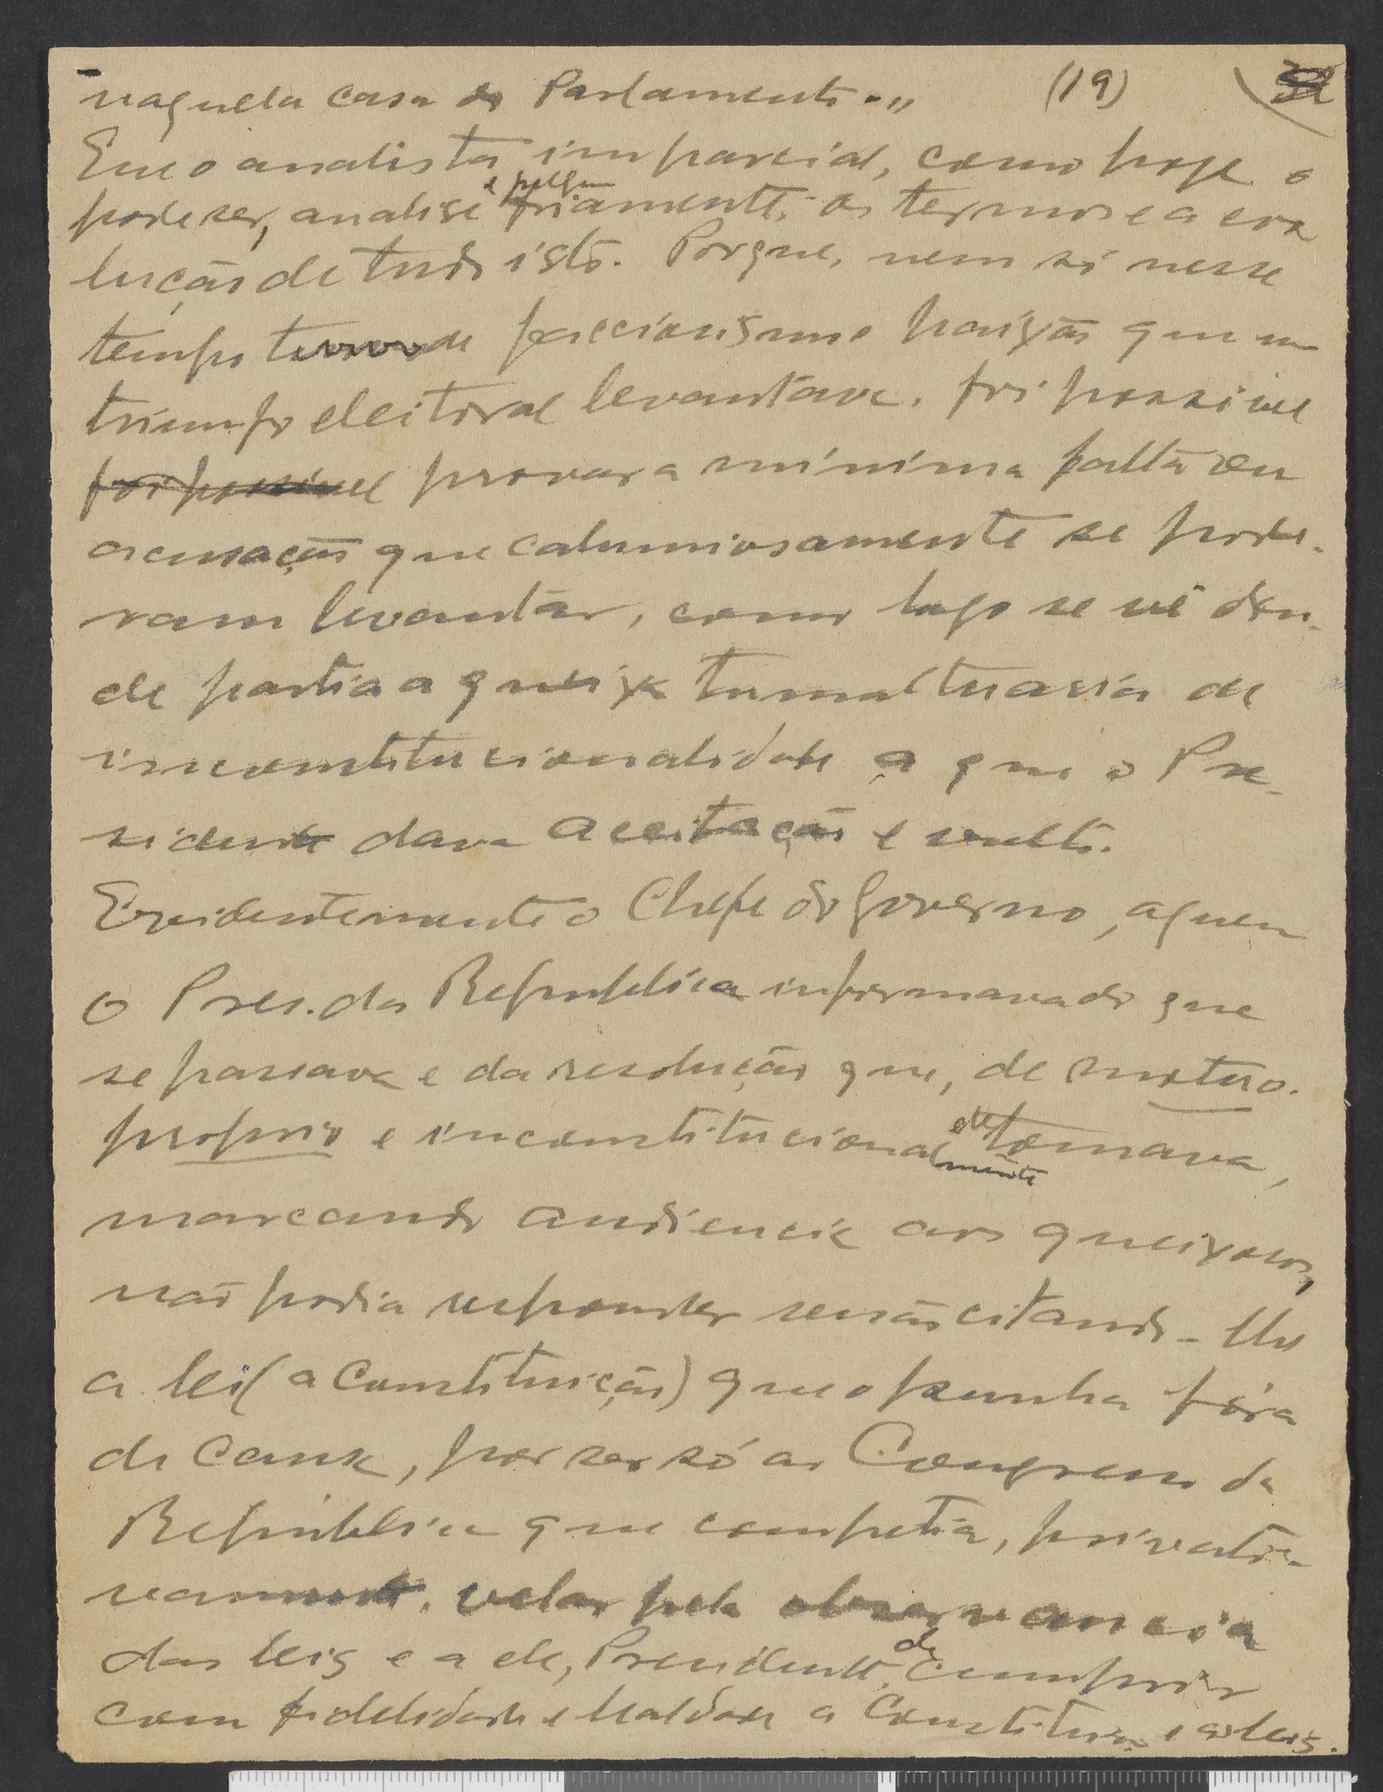 naquela casa do Parlamento.„ (19)
Que o analista imparcial, como hoje o
pode ser, analise e julgue friamente os termos e a evo
lução de tudo isto. Porque, nem só nesse
tempo de faccionismo paixão que um
triumfo eleitoral levantava, foi possivel
foi possivel provar a minima falta ou
acusação que caluniosamente se pode-
ram levantar, como logo se vê don-
de partia a queixa tumultuaria de
inconstitucionalidade a que o Pre-
sidente dava aceitação e vulto.
Evidentemente o Chefe do Governo, a quem
o Pres. da Republica informava do que
se passava e da resolução que, de motuo-
proprio e inconstitucionalmente ele tomava,
marcando audiencia aos queixosos,
não podia responder senão citando-lhe
a lei (a Constituição) que o punha fóra
da causa, por ser só ao Congresso da
Republica que competia, privati-
vamente, velar pela observancia
das leis e a ele, Presidente, de cumprir
com fidelidade e lealdade a Constituição e as leis.